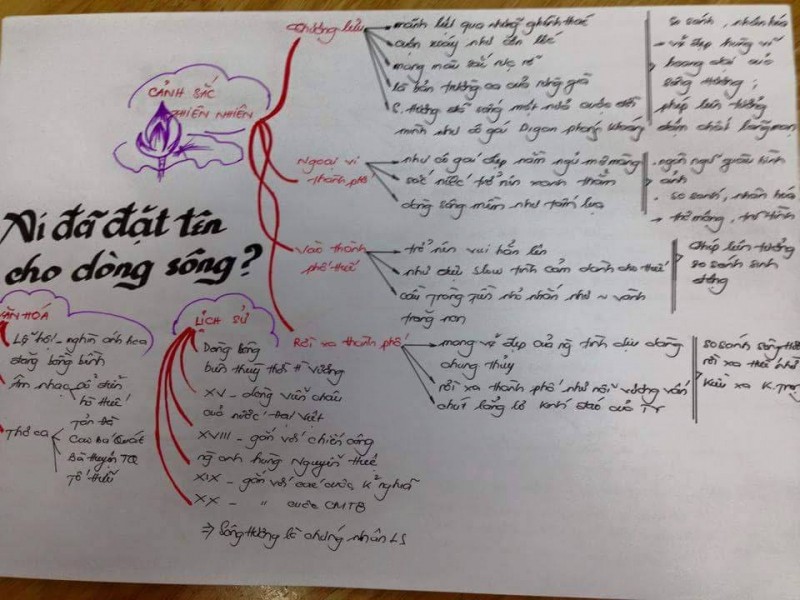 Ai đã đặt tên
cho dòng sông?
CẢNH SẮC
THIÊN NHIÊN
Thượng lưu
mãnh liệt qua những ghềnh thác
cuộn xoáy như cơn lốc
mang màu sắc rực rỡ
là bản trường ca của rừng già
S. Hương đã sống một nửa cuộc đời
mình như cô gái Digan phóng khoáng
so sánh, nhân hóa
→ vẻ đẹp hùng vĩ
hoang dại của
sông Hương;
phép liên tưởng
đậm chất lãng mạn
Ngoại vi
thành phố
như cô gái đẹp nằm ngủ mơ màng
sắc nước trở nên xanh thẳm
dòng sông mềm như tấm lụa
. ngôn ngữ giàu hình
ảnh
. so sánh, nhân hóa
→ thơ mộng, trữ tình
Vào thành
phố Huế
trở nên vui hẳn lên
như điệu slow tình cảm dành cho Huế
cầu Tràng Tiền nhỏ nhắn như ~ vành
trăng non
phép liên tưởng
so sánh sinh
động
Rời xa thành phố
mang vẻ đẹp của ng tình dịu dàng
chung thủy
rời xa thành phố như nỗi vương vấn
chút lẳng lơ kín đáo của TY
so sánh sông Hương
rời xa Huế như
Kiều xa K. Trọng
VĂN HOÁ
Lễ hội - nghìn ánh hoa
đăng bồng bềnh
Âm nhạc cổ điển
hò Huế
Thơ ca
Tản Đà
Cao Bá Quát
Bà Huyện TQ
Tố Hữu
LỊCH SỬ
Dòng sông
biên thuỳ thời H Vương
XV - dòng viễn châu
của nước Đại Việt
XVIII - gắn với chiến công
ng anh hùng Nguyễn Huệ
XIX - gắn với các cuộc k nghĩa
XX - " cuộc CMT8
⇒ Sông Hương là chứng nhân LS